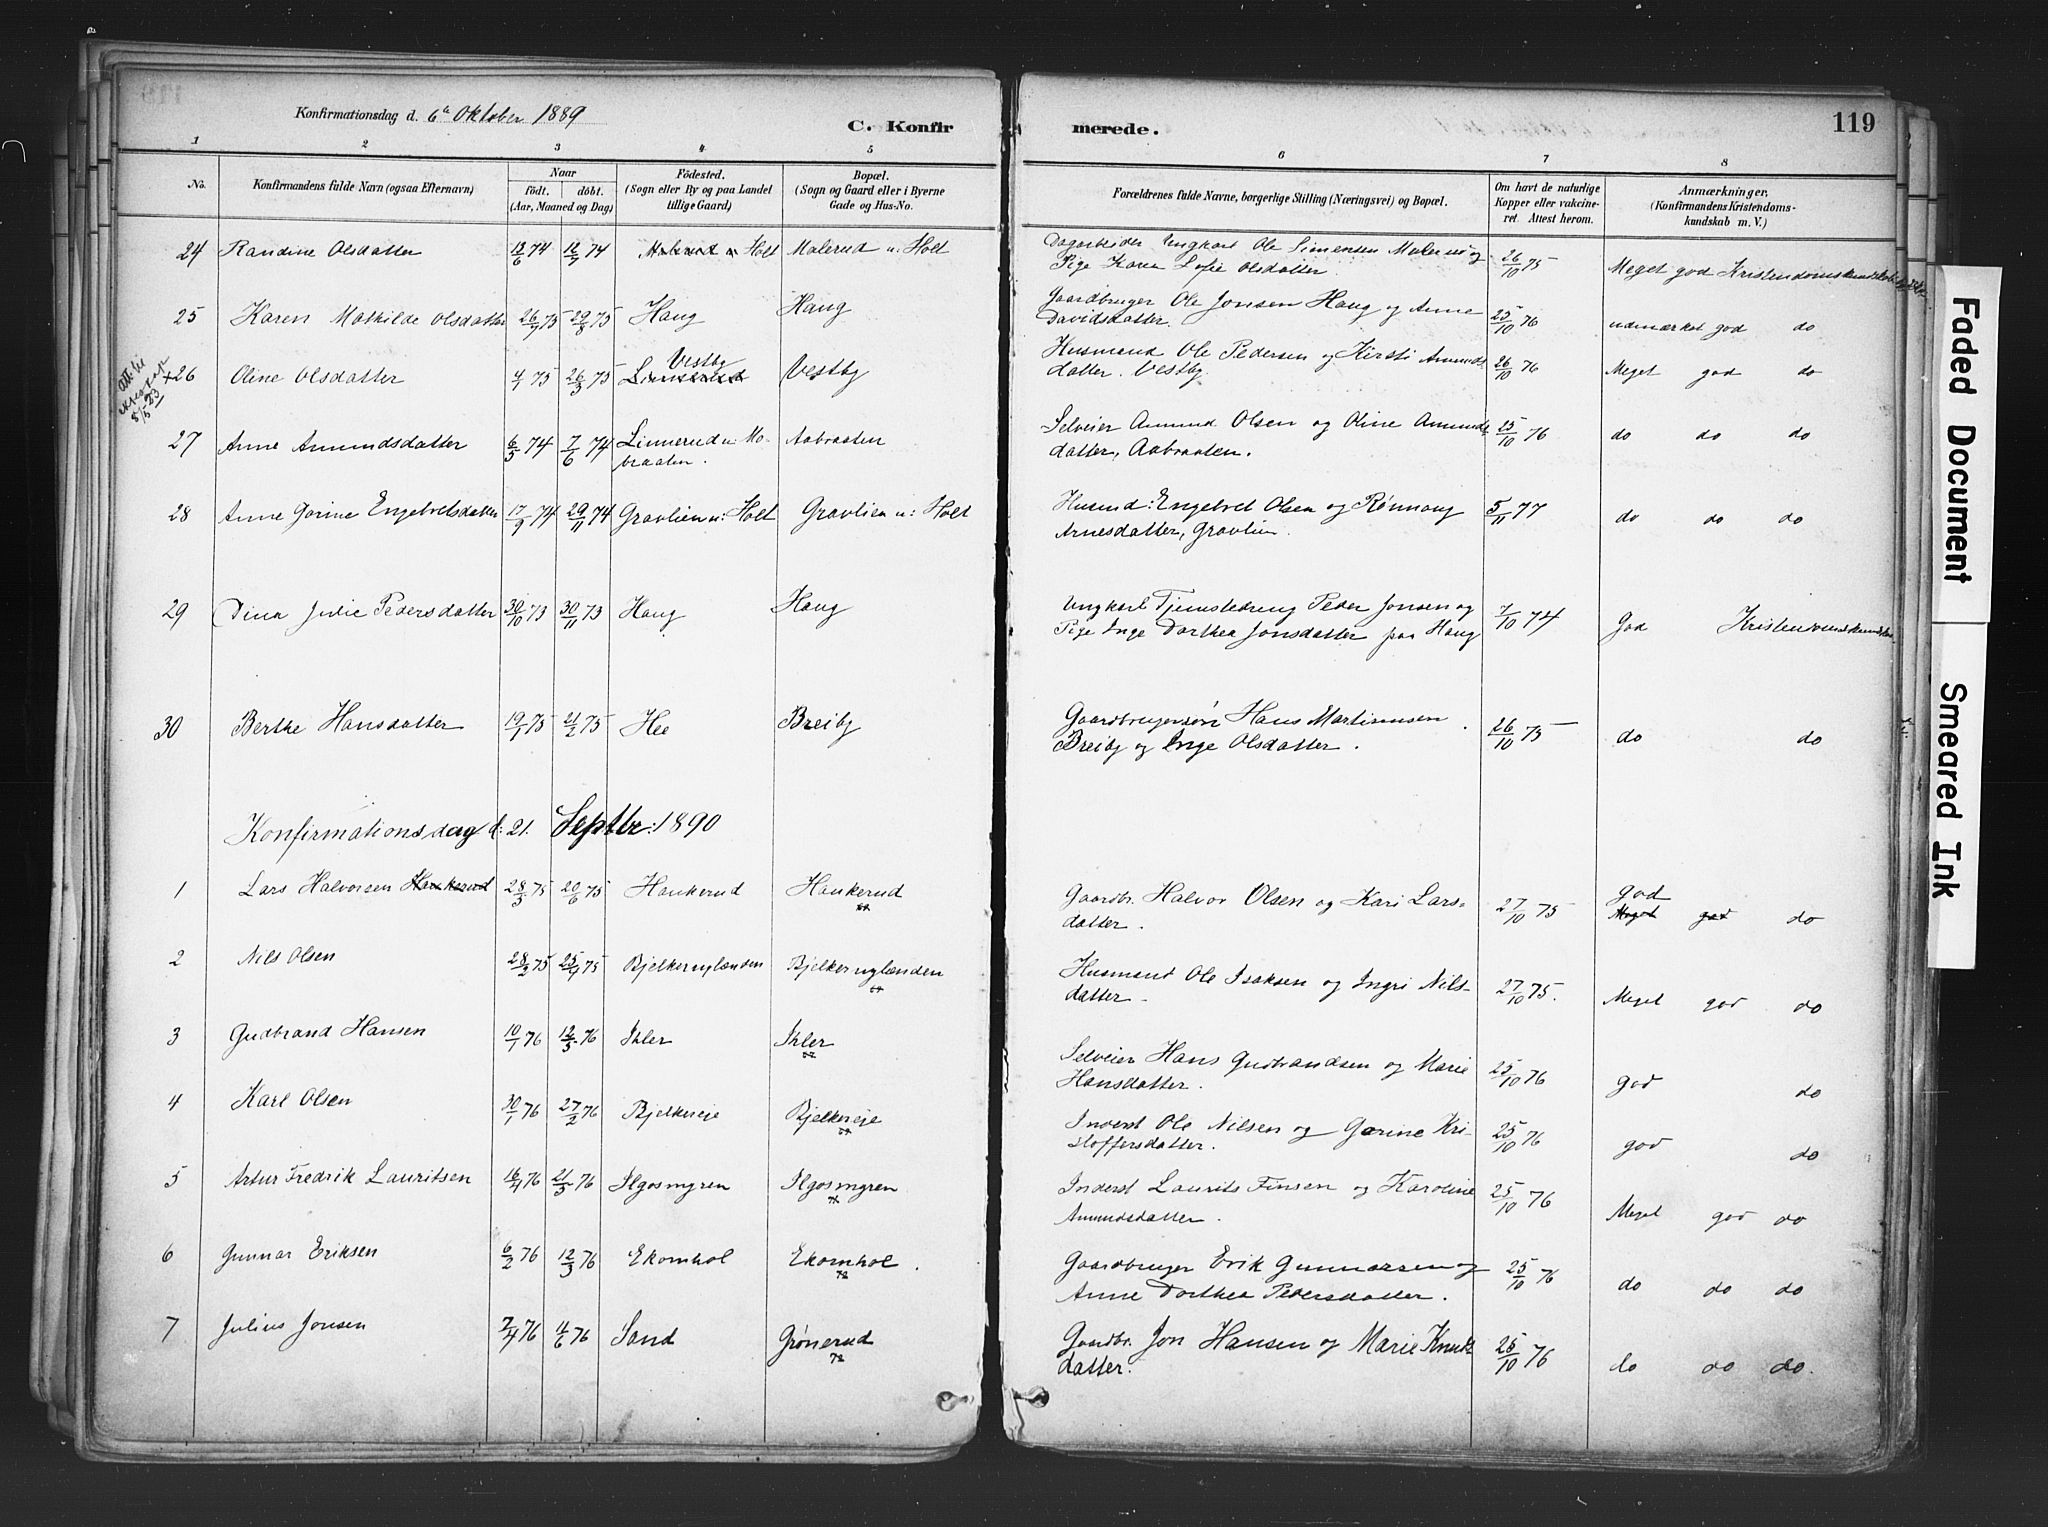 Konfirmationsdag d. 6te Oktober 1889
C. Konfir merede. 119
1 2 3 4 5 6 7 8
No. Konfirmandens fulde Navn (ogsaa Efternavn) Naar födt. döbt. (Aar, Maaned og Dag) Födested. (Sogn eller By og paa Landet tillige Gaard) Bopæl. (Sogn og Gaard eller i Byerne Gade og Hus-No. Forældrenes fulde Navne, borgerlige Stilling (Næringsvei) og Bopæl. Om havt de naturlige Kopper eller vakcineret. Attest herom. Anmærkninger. (Konfirmandens Kristendomskundskab m. V.)
24 Randine Olsdatter 12/6 74 12/7 74 Malerud u Holt Malerud u: Holt Dagarbeider Ungkarl Ole Simensen Malerud og 26/10 75 Meget god
Pige Karen Sofie Olsdatter
25 Karen Mathilde Olsdatter 26/7 75 29/8 75 Haug Haug Gaardbruger Ole Jonsen Haug og Anne 25/10 76 udmærket god do
Davidsdatter.
Attest
8/5 23
+26 Oline Olsdatter 4/1 75 26/3 75 Vestby Linnerud Vestby Husmand Ole Pedersen og Kirsti Amunds 26/10 76 Meget god do
datter. Vestby
27 Anne Amundsdatter 6/5 74 7/6 74 Linnerud u: Mo- Aabraaten Selveier Amund Olsen og Oline Amunds 25/10 76 do do do
braaten. datter, Aabraaten.
28 Anne Gorine Engebretsdatter 17/9 74 29/11 74 Gravlien u: Holt Gravlien u: Holt Husmd: Engebret Olsen og Rønnaug 5/11 77 do do do
Arnesdatter, Gravlien.
29 Dina Julie Pedersdatter 30/10 73 30/11 73 Haug Haug Ungkarl Tjenstedreng Peder Jonsen og 7/10 74 God
Pige Inge Dorthea Jonsdatter paa Haug
30 Berthe Hansdatter 19/1 75 21/2 75 Hee Breiby Gaardbrugersøn Hans Martinusen 26/10 75 do do
Breiby og Inge Olsdatter.
Konfirmationsdag d: 21. Septbr: 1890
1 Lars Halvorsen Haukerud 28/5 75 20/6 75 Haukerud Haukerud Gaardbr. Halvor Olsen og Kari Lars- 27/10 75 god Meget god do
datter.
2 Nils Olsen 28/2 75 25/4 75 Bjelkernylænden Bjelkernylænden Husmand Ole Isaksen og Ingri Nils- 27/10 75. Meget god do
datter
3 Gudbrand Hansen 10/1 76 12/3 76 Ihler Ihler Selveier Hans Gudbrandsen og Marie 25/10 76 god do
Hansdatter.
4 Karl Olsen 30/1 76 27/2 76 Bjelkereie Bjelkereie Inderst Ole Nilsen og Gorine Kri- 25/10 76 god do
stoffersdatter.
5 Artur Fredrik Lauritsen 16/4 76 21/5 76 Ilgosmyren Ilgosmyren Inderst Laurits Finsen og Karoline 25/10 76 Meget god do
Amundsdatter.
6 Gunnar Eriksen 6/2 76 12/3 76 Ekornhol Ekornhol. Gaardbruger Erik Gunnarsen og 25/10 76 do do do
Anne Dorthea Pedersdatter.
7 Julius Jonsen 7/4 76 11/6 76 Sand Grønerud Gaardbr. Jon Hansen og Marie Knuds 25/10 76 do do do.
datter.
Faded Document
Smeared Ink